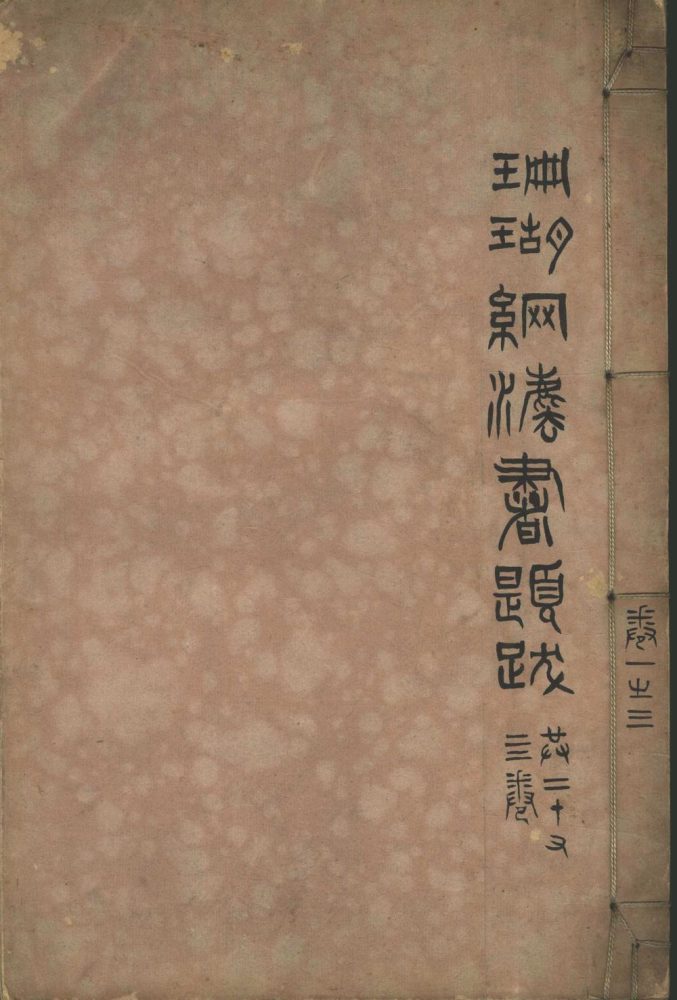 珊瑚網法書題跋
共二十又
三卷
卷一之三